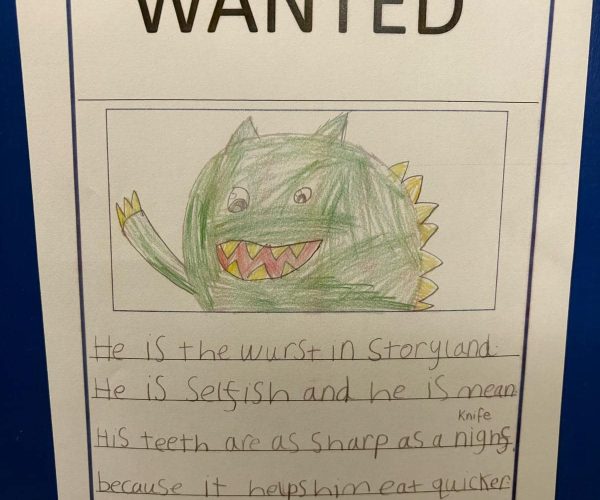 WANTED
He is the wurst in Storyland.
He is selfish and he is mean
Knife
His teeth are as sharp as a nighf.
because it helps him eat quicker